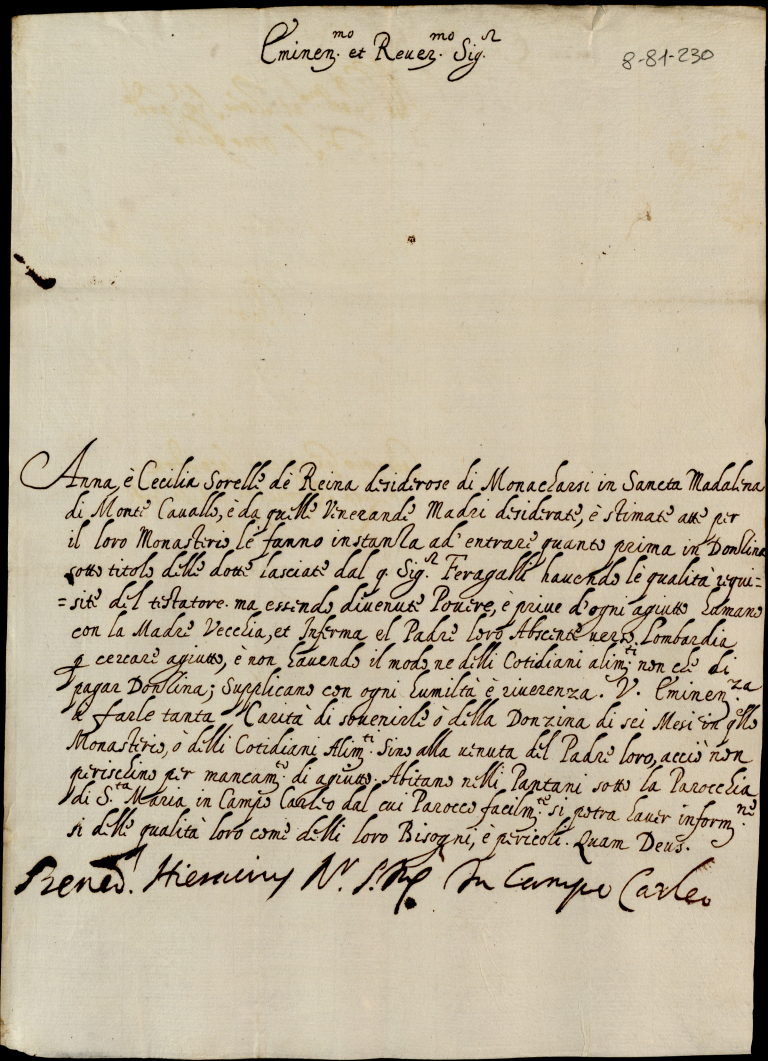 Eminen.mo et Reuer.mo Sig.r
8-81-230
Anna, è Cecilia Sorelle dè Reina desiderose di Monacharsi in Sancta Madalena
di Monte Cauallo, è da quelle Venerande Madri desiderate, è stimate atte per
il loro Monasterio le fanno instanza ad' entrare quanto prima in Donzina
sotto titolo delle dotte lasciate dal q. Sig.r Feragalli hauendo le qualità requi=
=site del testatore. ma essendo diuenute Pouere, è priue d'ogni agiutto humano
con la Madre Vecchia, et Inferma el Padre loro Absente uerso Lombardia
p cercare agiutto, è non hauendo il modo ne delli Cotidiani alim.ti non che di
pagar Donzina; Supplicano con ogni humiltà è riuerenza. V. Eminen.za
à farle tanta Carità di souenirle ò della Donzina di sei Mesi in q.llo
Monasterio, ò delli Cotidiani Alim.ti Sino alla uenuta del Padre loro, acciò non
perischino per mancam.to di agiutto. Abitano nelli Pantani sotto la Parocchia
di S.ta Maria in Campo Carleo dal cui Paroco facilm.te si potra hauer inform.ne
si delle qualità loro come delli loro Bisogni, è pericoli. Quam Deus.
Bened. In Campo Carleo